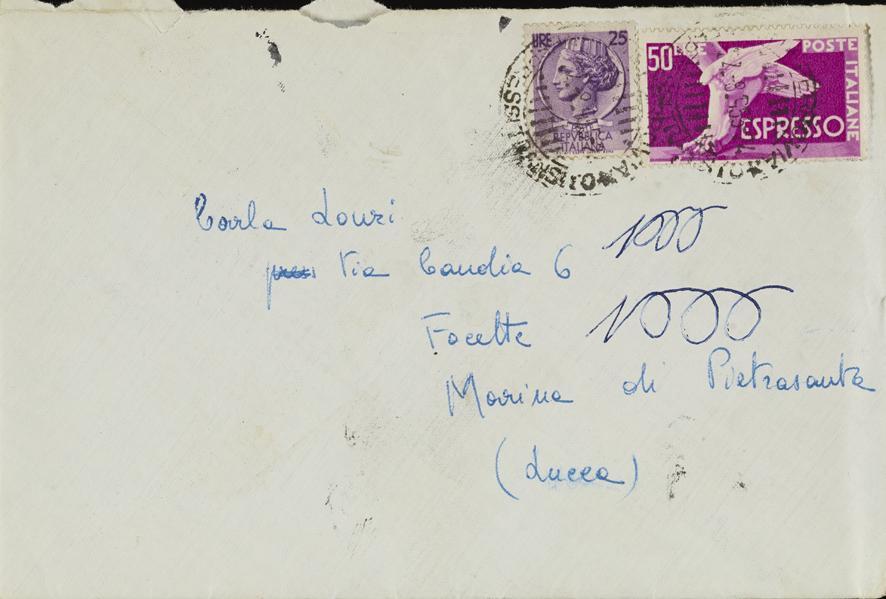 LIRE 25
REPVBBLICA
ITALIANA
50 LIRE POSTE ITALIANE
ESPRESSO
Carla Lonzi
Via Candia 6
1000
Focette
1000
Marina di Pietrasanta
(Lucca)